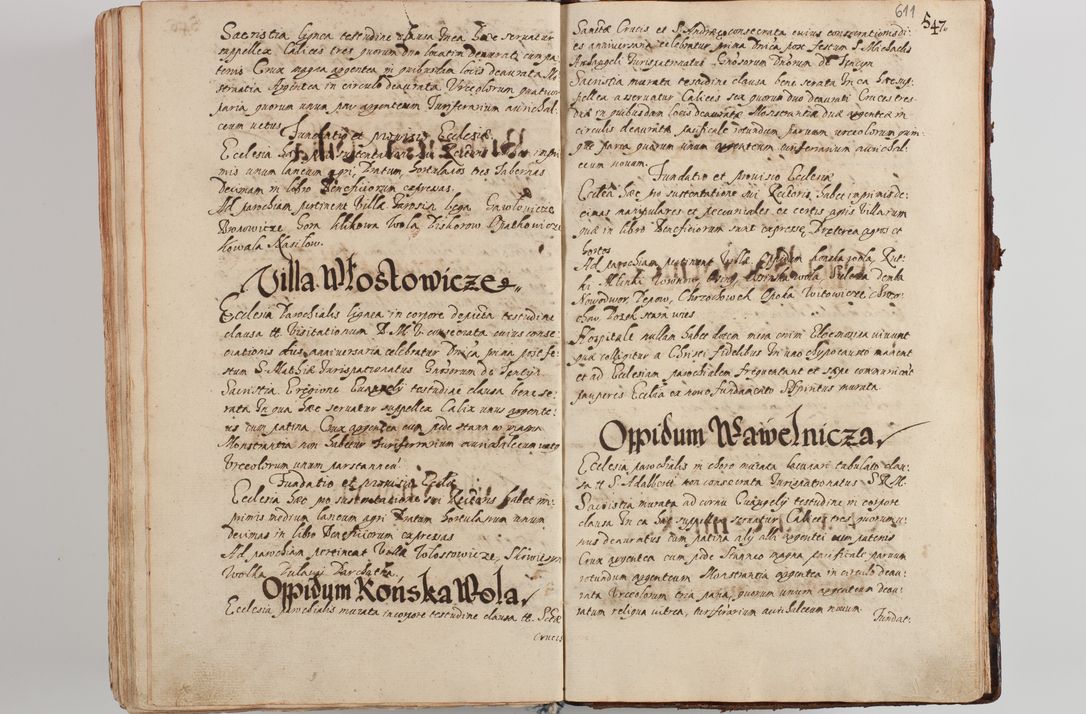 Sacristia lignea testudine clausa In ea hæc servatur
suppellex Calices tres quorum duo locatim deaurati cum pa
tenis Crux magna argentea in quibusdam locis deaurata Mo
Argentea in circulo deaurata Urceolorum quatuor
paria quorum unum par argenteum Turiferarium aurichal-
ceum vetus
Fundatio et provisio Ecclesiæ
Ecclesia hæc pro sustentatione sui Rectoris habet impri
mis unum laneum agri, Pratum, hortulanos tres Tabernas
decimam in libro Beneficiorum expressas
Ad parochiam pertinent Villæ Parossia
Gora Klikowa Wola
Kowala Masilow.
Villa Włostowicze
Ecclesia Parochialis lignea in corpore depicta testudine
clausa tt. Visitationum B. M. V. consecrata cuius conse
crationis dies anniversaria celebratur Dnica prima post fe-
stum S. Mathiæ Jurispatronatus Gnosorum de Tenczyn
Sacristia E regione Evangely testudine clausa bene se-
rata In qua hæc servatur suppellex Calix unus argente-
us cum patina Crux argentea cum pede stanneo magna
Monstrantia non habetur Turiferarium aurichalceum
Urceolorum unum par stanneum
Fundatio et provisio Ecclæ
Ecclesia hæc pro sustentatione sui Rectoris habet im-
primis medium laneum agri Pratum hortulanum unum
decimas in libro Beneficiorum expressas
Ad parochiam pertinent Villæ Wlostowicze, Skowieszyn
Wolka Pulawy Parchatka
Oppidum Konska Wola
Ecclesia parochialis murata in corpore testudine clausa tt. Sctæ
Crucis
611
547
Sanctæ Crucis et S. Andreæ consecrata cuius consecrationis di-
es anniversaria celebratur prima Dnica post festum S. Michaelis
Archangel. Jurispatronatus Gnosorum Dnorum de Tenczyn
Sacristia murata testudine clausa bene serata In ea hæc sup-
pellex asservatur Calices sex quorum duo deaurati Cruces tres
duæ in quibusdam locis deauratæ Monstrantiæ duæ argenteæ in
circulis deauratæ pacificale rotundum parvum urceolorum quin-
que paria quorum unum argenteum turiferarium aurichal-
ceum novum
Fundatio et provisio Ecclesiæ
Ecclesia hæc pro sustentatione sui Rectoris habet imprimis de-
cimas manipulares et pecuniales ex certis agris Villarum
quæ in libro Beneficiorum sunt expressæ Præterea agros et
hortos
Ad parochiam pertinent Villæ Oppidum Konska wola, Rut-
ki Mlinki
Nowodwor, Chrzachowek Opoka Witowicze
stara wies
Hospitale nullum habet dotem mera enim Eleemosina vivunt
quæ colligitur a Christi fidelibus In uno hypocausto manent
et ad Ecclesiam parochialem frequentant et sæpe communicant
pauperes Ecclia ex novo fundamento SSpiritus murata
Oppidum Wawelnicza
Ecclesia parochialis in choro murata lacunari tabulato clau-
sa tt. S. Adalberti non consecrata Jurispatronatus S. R. M.
Sacristia murata ad cornu Evangely testudine in corpore
clausa In ea hæc suppellex servatur Calices tres quorum u-
nus deauratus cum patina alij alli argentei cum patenis
Crux argentea cum pede stanneo magna pacificale parvum
rotundum argenteum Monstrantia argentea in circulo deau-
rata Urceolorum tria paria, quorum unum argenteum deau-
ratum reliqua vitrea, turiferarium aurichalceum novum
Fundat: